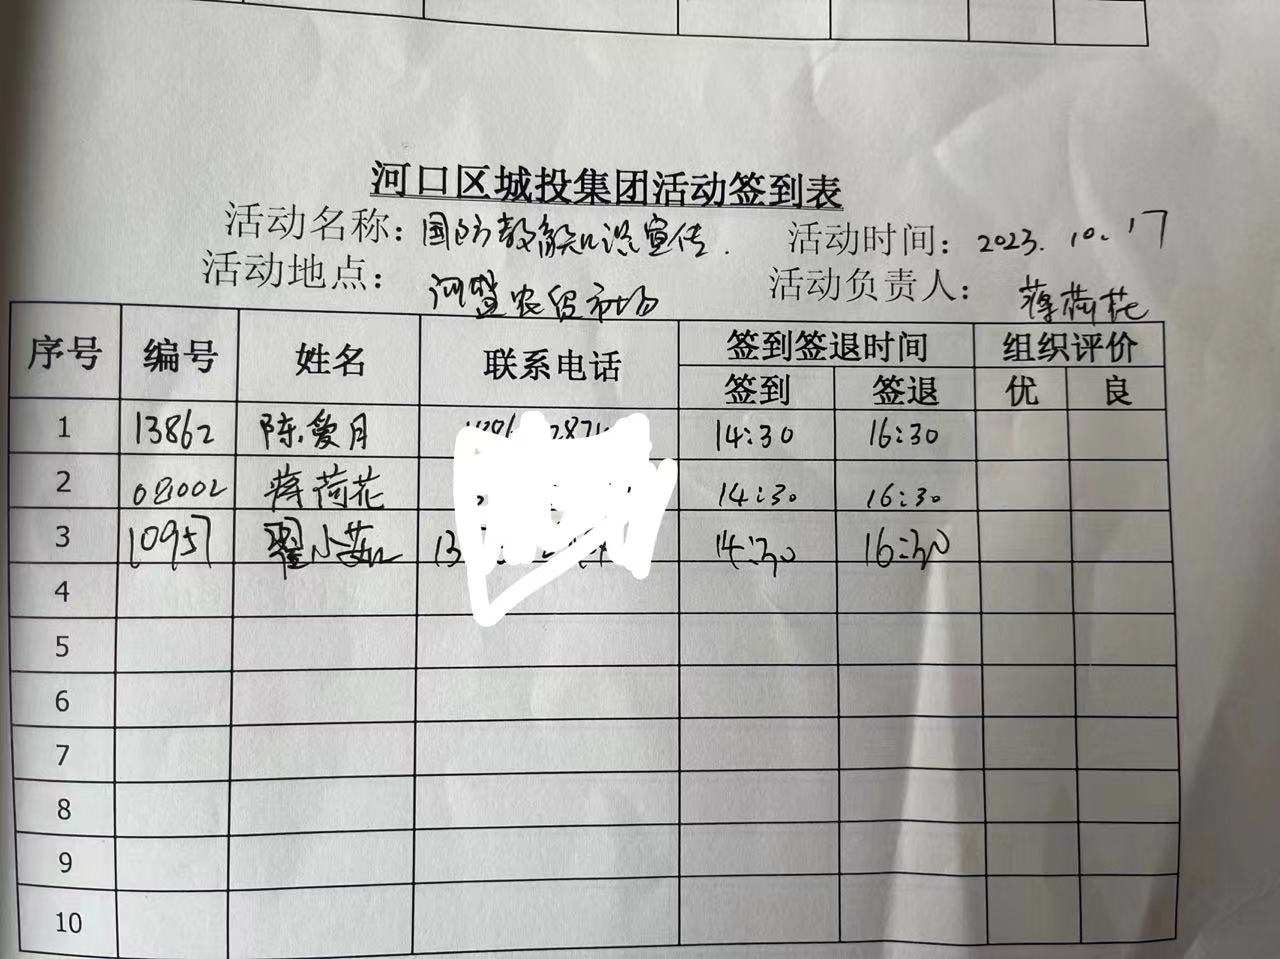 河口区城投集团活动签到表
活动名称：国防教育知识宣传. 活动时间：2023.10.17
活动地点：河盟农贸市场 活动负责人：蒋荷花
序号 编号 姓名 联系电话 签到签退时间 组织评价
签到 签退 优 良
1 13862 陈爱月 14:30 16:30
2 02002 蒋荷花 14:30 16:30
3 10957 翟小茹 13 14:30 16:30
4
5
6
7
8
9
10